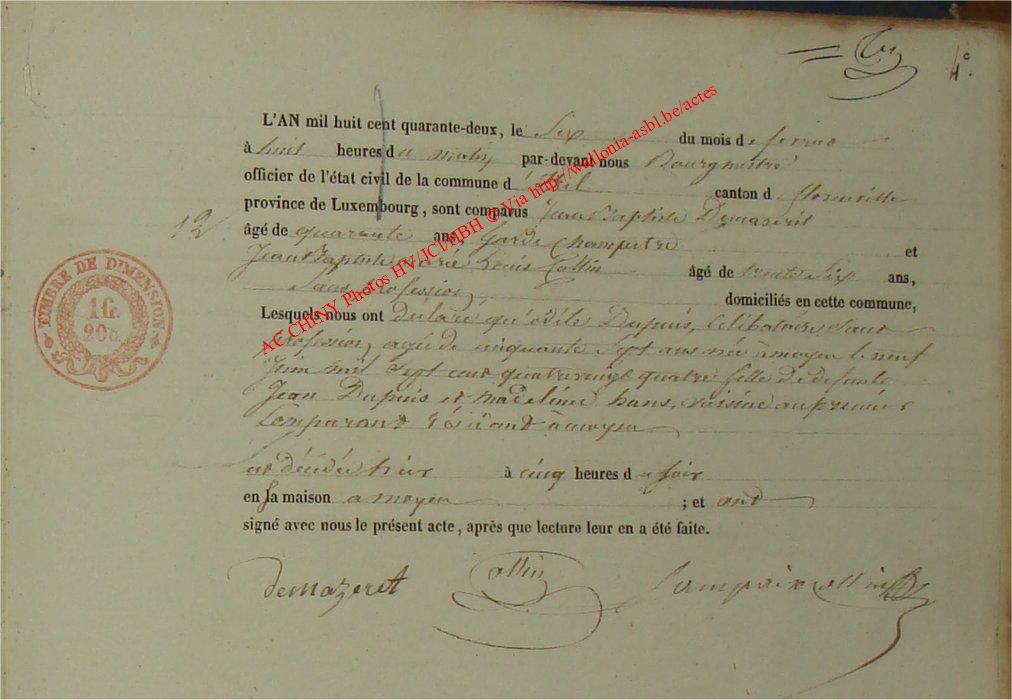 4°.
L'AN mil huit cent quarante-deux, le Six du mois de fevrier
à huit heures du matin par-devant nous Bourgmestre
officier de l'état civil de la commune d'Izel canton de florenville
province de Luxembourg, sont comparus Jean Baptiste Demazeret
12
âgé de quarante ans, Garde Champetre et
Jean Baptiste marie Louis Collin âgé de trente Six ans,
Sans profession domiciliés en cette commune,
Lesquels nous ont déclaré qu'odile Dupuis, Celibataire Sans
profession, agée de cinquante Sept ans née à moyen le neuf
Juin mil Sept cent quatrevingt quatre fille de defunts
Jean Dupuis et madeleine hans, voisine au premier
Comparant Résidant à moyen
est décédée hier à cinq heures du soir
en sa maison a moyen ; et ont
signé avec nous le présent acte, après que lecture leur en a été faite.
demazeret Collin Sampaix collin
TIMBRE DE DIMENSION
1fr.
20c.
AC CHINY Photos HV/JCI/MBH © Via http://wallonia-asbl.be/actes